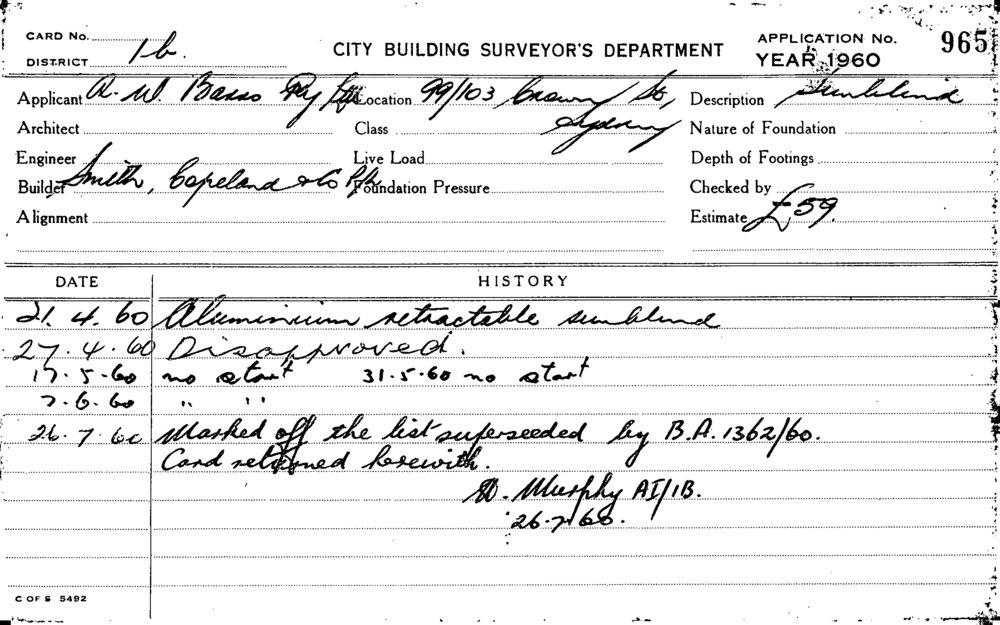 CARD No.
DISTRICT 1b.
CITY BUILDING SURVEYOR'S DEPARTMENT
APPLICATION No. 965
YEAR 1960
Applicant A. W. Basso Pty Ltd Location 99/103 Crown St, Sydney Description Sunblind
Architect Class Nature of Foundation
Engineer Live Load Depth of Footings
Builder Smith, Copeland & Co P/L Foundation Pressure Checked by
Alignment Estimate £59.
DATE HISTORY
21. 4. 60 Aluminium retractable sunblind
27. 4. 60 Disapproved.
17. 5. 60 no start 31. 5. 60 no start
7. 6. 60 " "
26. 7. 60 Marked off the list superseeded by B.A. 1362/60.
Card returned herewith.
Murphy AI/1B.
26.7.60.
C OF S 5492